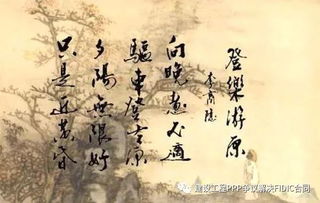 登樂游原
李商隐
向晚意不適
驅車登古原
夕陽無限好
只是近黄昏
建设工程PPP争议解决FIDIC合同